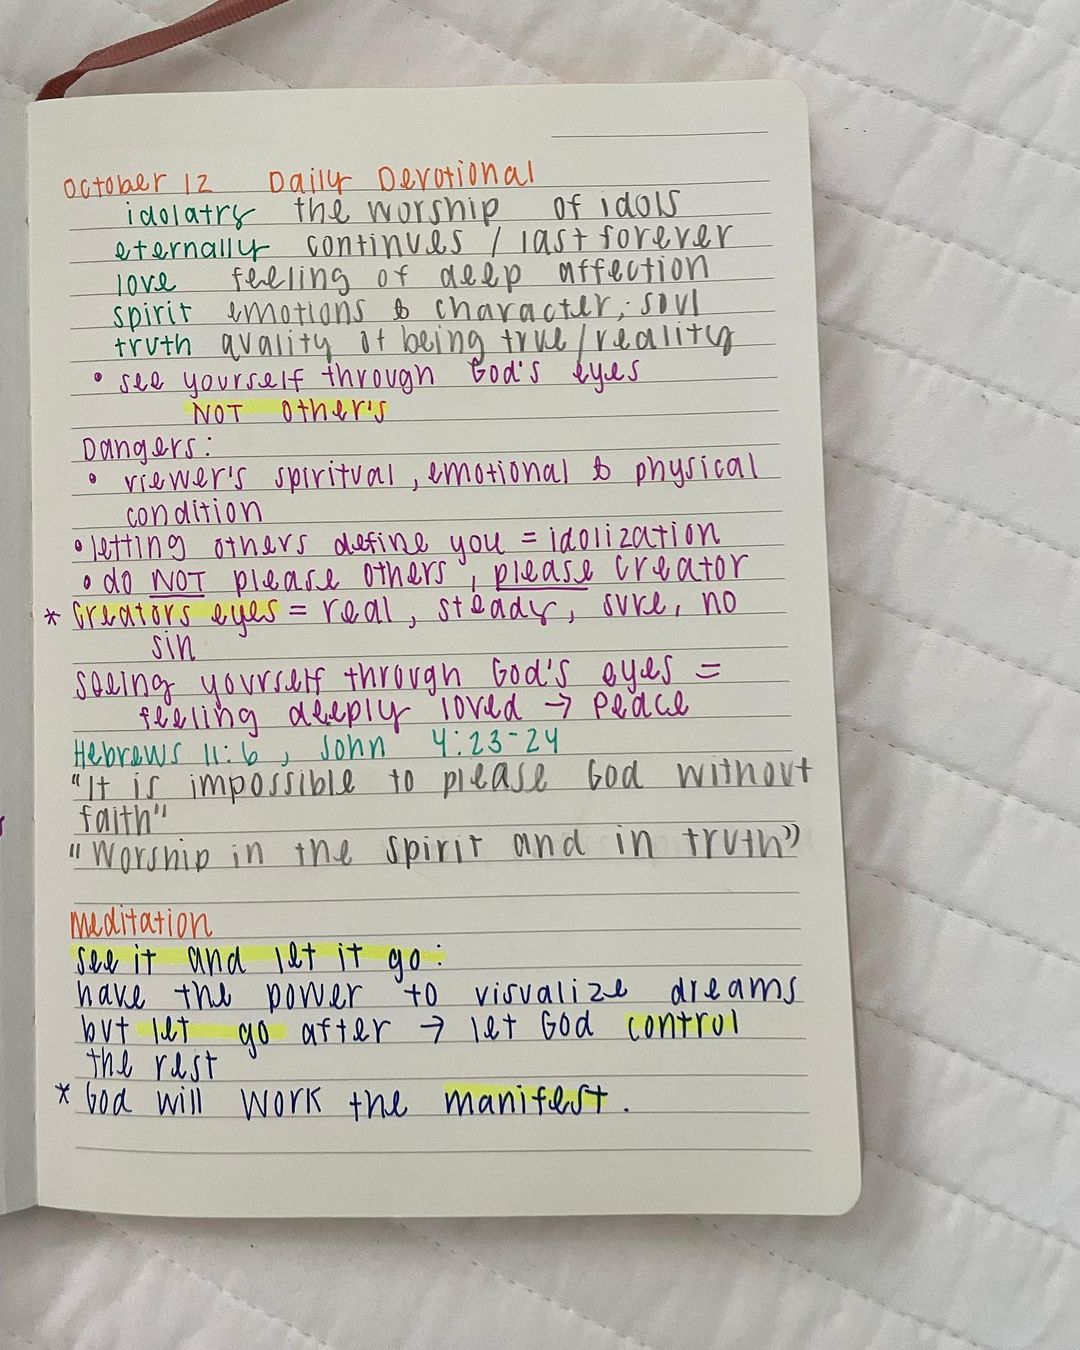 October 12 Daily Devotional
idolatry the worship of idols
eternally continues / last forever
love feeling of deep affection
spirit emotions & character; soul
truth quality of being true/reality
• see yourself through God's eyes
NOT other's
Dangers:
• viewer's spiritual, emotional & physical
condition
• letting others define you = idolization
• do NOT please others, please Creator
* Creators eyes = real, steady, sure, no
sin
seeing yourself through God's eyes =
feeling deeply loved → peace
Hebrews 11:6, John 4:23-24
"It is impossible to please God without
faith"
"Worship in the spirit and in truth"
meditation
see it and let it go:
have the power to visualize dreams
but let go after → let God control
the rest
* God will work the manifest.